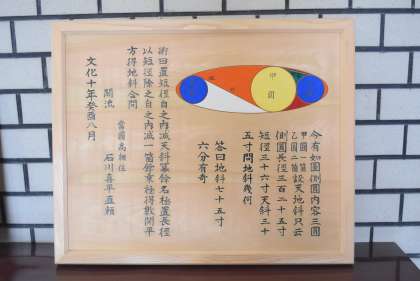 甲
圓
今有如圖側圓內容三圓
甲圓一箇
乙圓二箇
設天地斜只云
側圓長徑三百二十五寸
短徑三十六寸天斜三十
五寸問地斜幾何
答曰地斜七十五寸
六分有奇
術曰置短徑自之內減天斜冪餘名極置長徑
以短徑除之自之內減一箇餘乗極得數開平
方得地斜合問
關流
當國高棚住
石川喜平直頼
文化十年癸酉八月